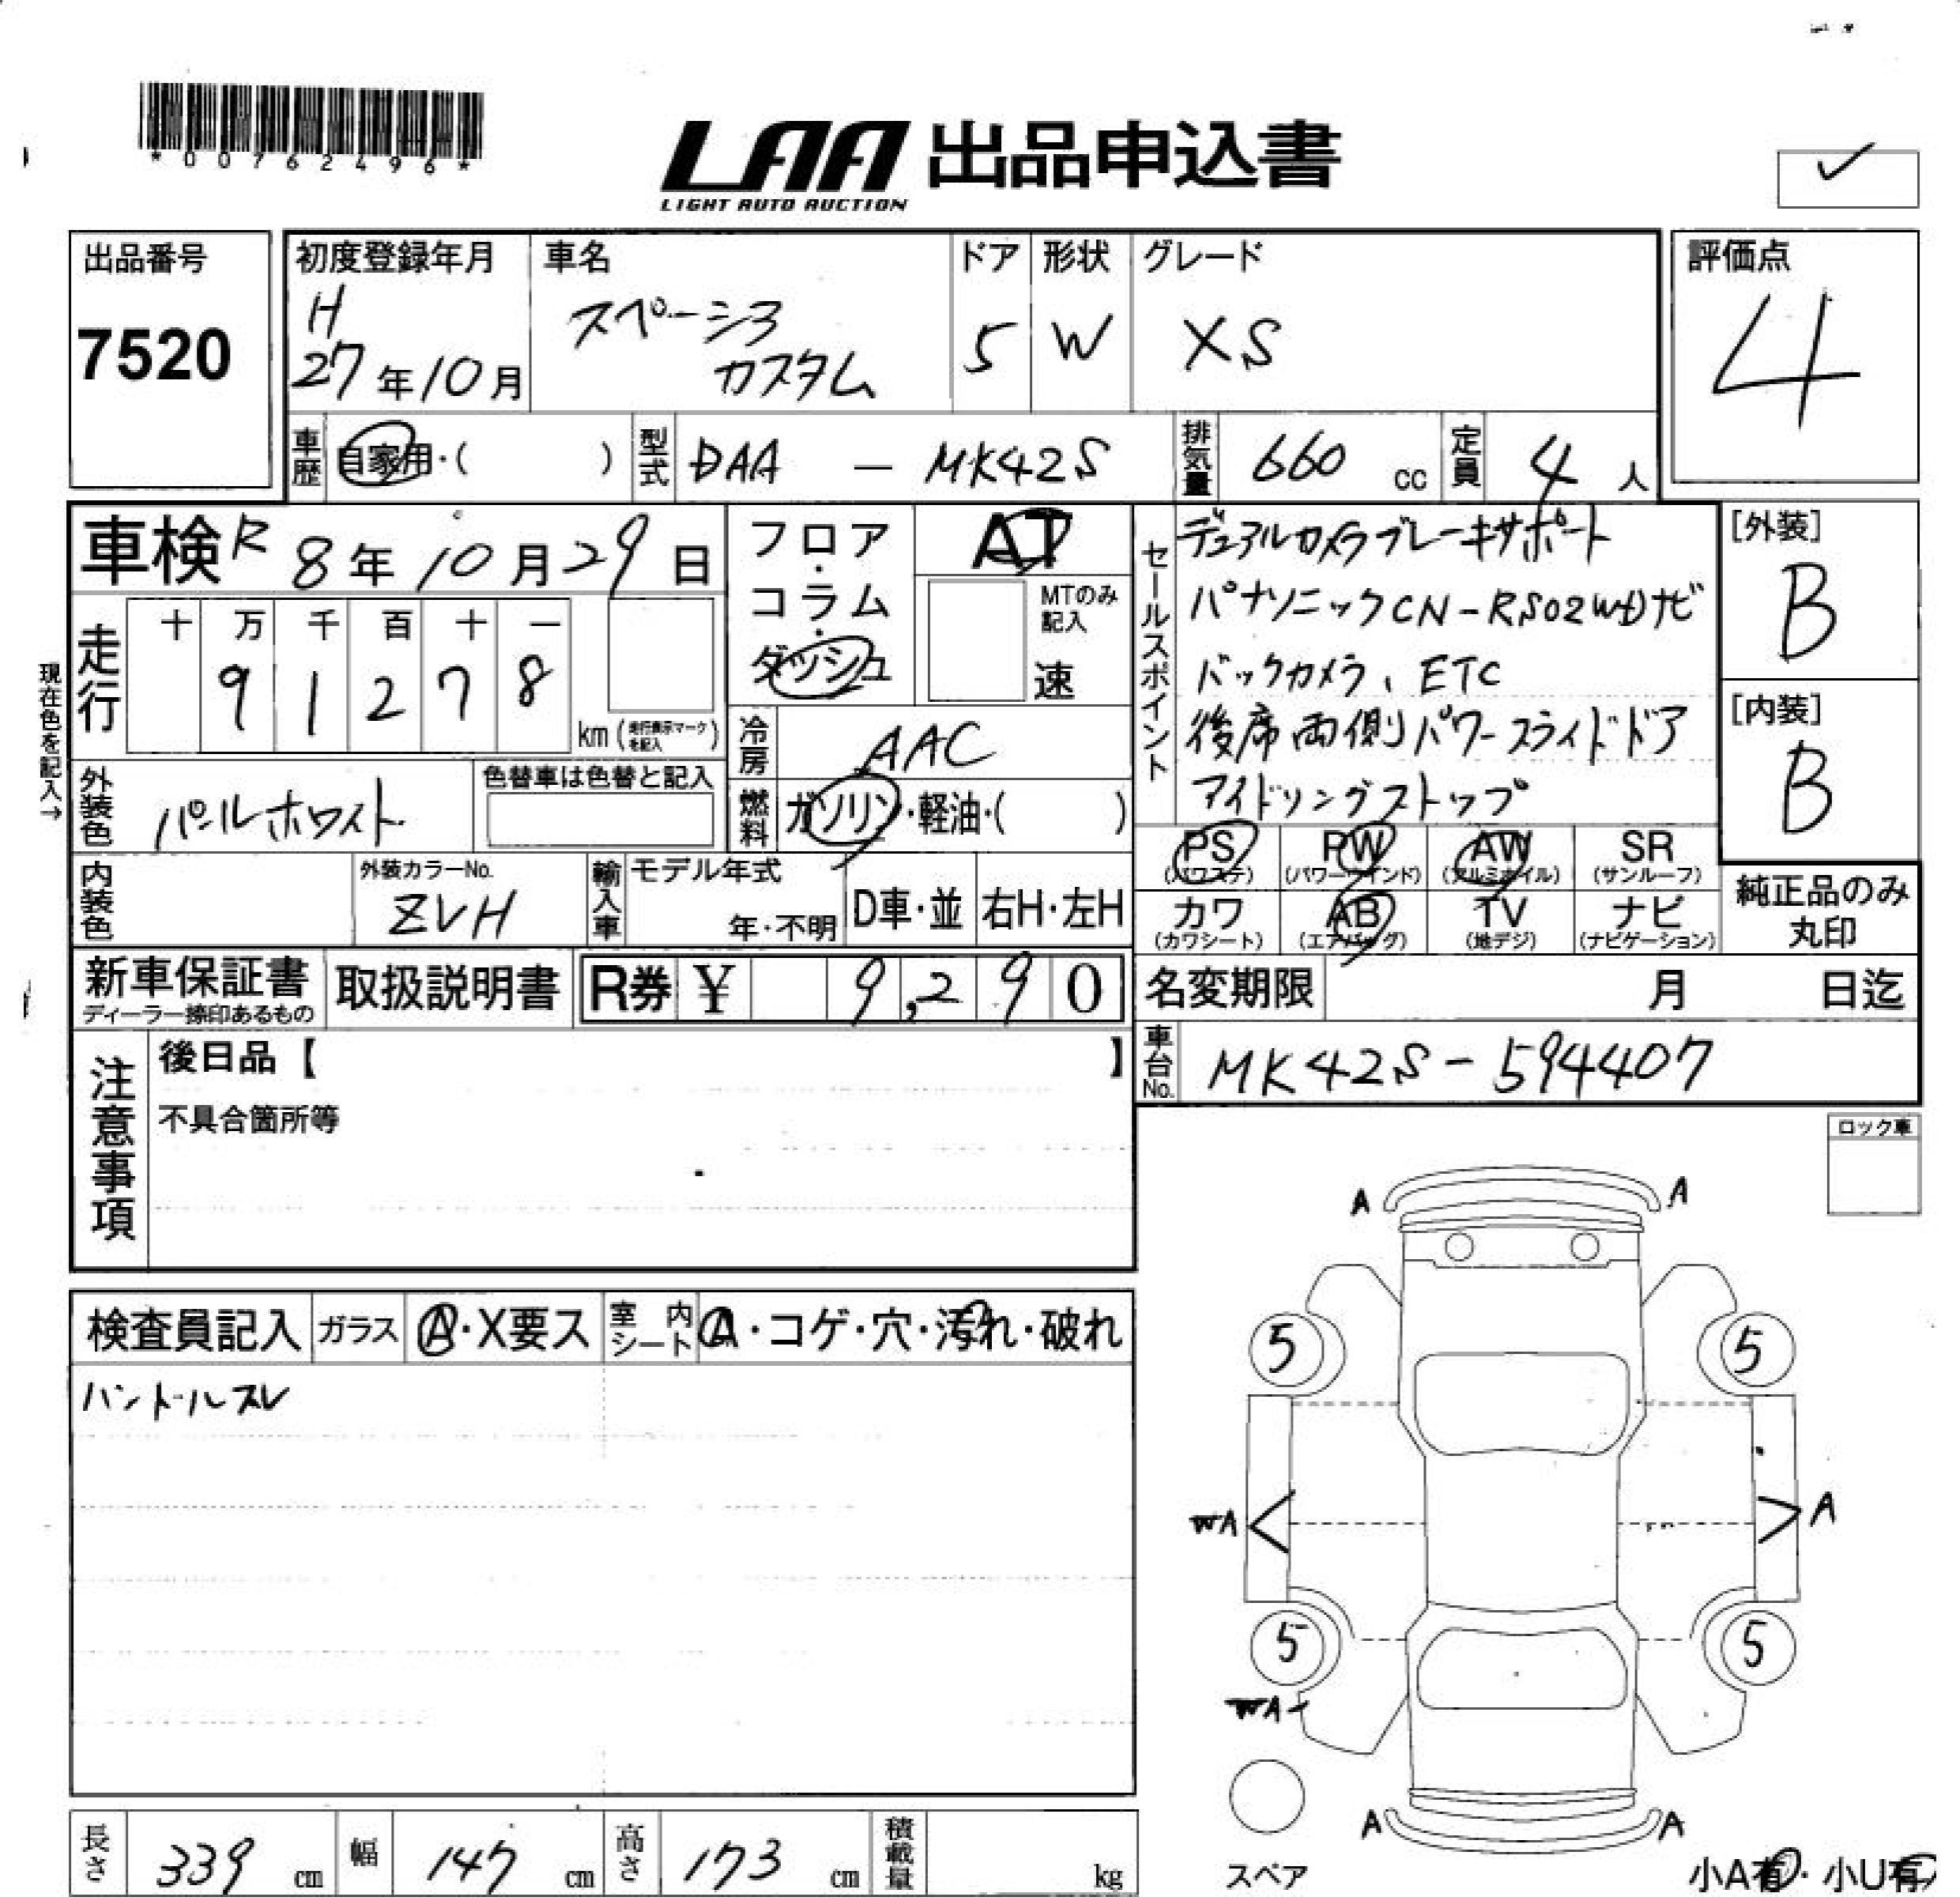 *00762496*
LAA 出品申込書
LIGHT AUTO AUCTION
出品番号
7520
初度登録年月
H
27年10月
車名
スペーシア
カスタム
ドア
5
形状
W
グレード
XS
評価点
4
車歴
自家用・( )
型式
DAA — MK42S
排気量
660 cc
定員
4 人
車検 R 8年10月29日
フロア・コラム・ダッシュ
AT
MTのみ記入
速
セールスポイント
デュアルカメラブレーキサポート
パナソニックCN-RS02WDナビ
バックカメラ、ETC
後席両側パワースライドドア
アイドリングストップ
[外装]
B
[内装]
B
現在色を記入→
走行
十 万 千 百 十 一
9 1 2 7 8
km(走行表示マークを記入)
冷房
AAC
燃料
ガソリン・軽油・( )
外装色
パールホワイト
色替車は色替と記入
内装色
外装カラーNo.
ZVH
輸入車
モデル年式
年・不明
D車・並
右H・左H
PS (パワステ)
PW (パワーウインド)
AW (アルミホイル)
SR (サンルーフ)
カワ (カワシート)
AB (エアバッグ)
TV (地デジ)
ナビ (ナビゲーション)
純正品のみ
丸印
新車保証書
ディーラー捺印あるもの
取扱説明書
R券 ¥ 9,290
名変期限 月 日迄
車台No.
MK42S-594407
注意事項
後日品【 】
不具合箇所等
ロック車
検査員記入
ガラス
A・X要ス
室内シート
A・コゲ・穴・汚れ・破れ
ハンドルスレ
A
A
5
5
WA
A
5
5
WA
A
A
スペア
小A有・小U有
長さ 339 cm
幅 147 cm
高さ 173 cm
積載量 kg